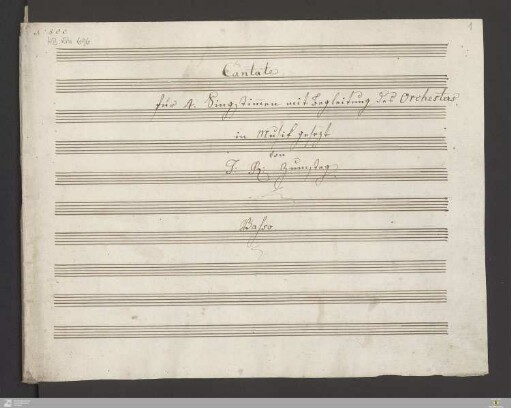 1
Cantate
für 4 Singstimen mit Begleitung des Orchesters
in Musik gesezt
von
J. R. Zumsteg
Basso